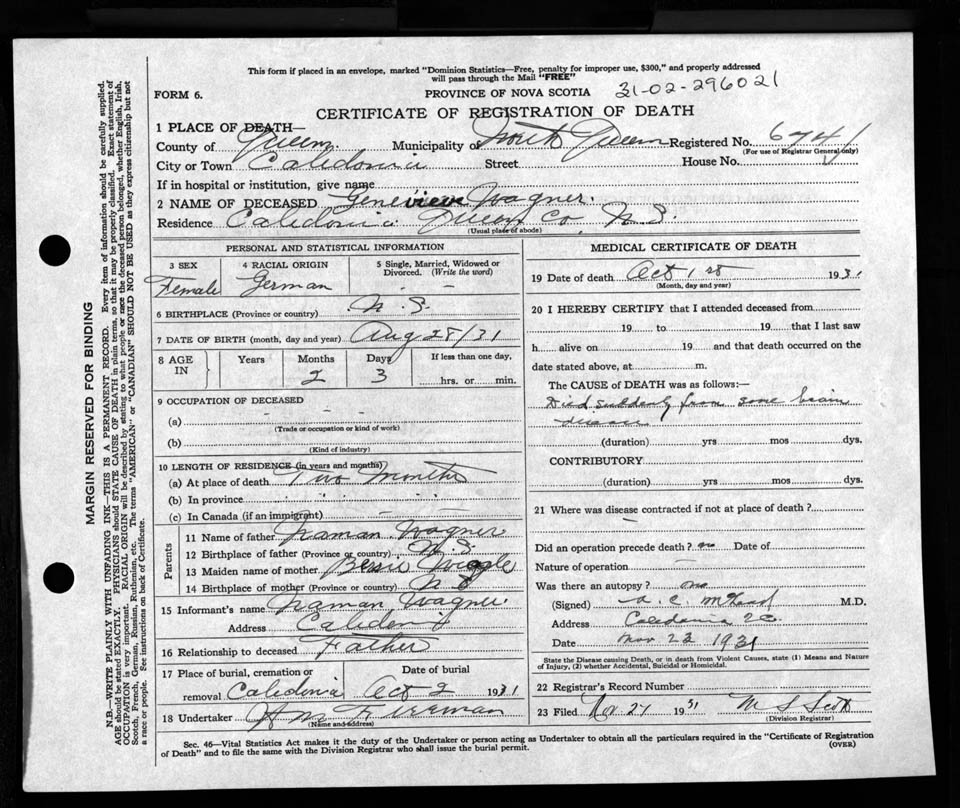 This form if placed in an envelope, marked "Dominion Statistics—Free, penalty for improper use, $300," and properly addressed
will pass through the Mail "FREE"
FORM 6.
PROVINCE OF NOVA SCOTIA
31-02-296021
CERTIFICATE OF REGISTRATION OF DEATH
1 PLACE OF DEATH—
County of Queens Municipality of North Queens Registered No. 6741
(For use of Registrar General only)
City or Town Caledonia Street House No.
If in hospital or institution, give name
2 NAME OF DECEASED Genevieve Wagner.
Residence Caledonia Queens Co, N.S.
(Usual place of abode)
PERSONAL AND STATISTICAL INFORMATION
3 SEX Female
4 RACIAL ORIGIN German
5 Single, Married, Widowed or Divorced. (Write the word) - -
6 BIRTHPLACE (Province or country) N.S.
7 DATE OF BIRTH (month, day and year) Aug 28/31
8 AGE IN Years Months 2 Days 3 If less than one day, hrs. or min.
9 OCCUPATION OF DECEASED
(a) - - -
(Trade or occupation or kind of work)
(b)
(Kind of industry)
10 LENGTH OF RESIDENCE (in years and months)
(a) At place of death Two months
(b) In province
(c) In Canada (if an immigrant) - -
Parents
11 Name of father Wagner
12 Birthplace of father (Province or country) N.S
13 Maiden name of mother Bessie
14 Birthplace of mother (Province or country) N S
15 Informant's name Wagner
Address Caledonia
16 Relationship to deceased Father
17 Place of burial, cremation or removal Caledonia Date of burial Oct 2 1931
18 Undertaker H M Freeman
(Name and address)
MEDICAL CERTIFICATE OF DEATH
19 Date of death Oct 1st 1931
(Month, day and year)
20 I HEREBY CERTIFY that I attended deceased from
19 to 19 that I last saw
h alive on 19 and that death occurred on the
date stated above, at m.
The CAUSE of DEATH was as follows:—
Died suddenly from some brain
disease
(duration) yrs mos dys.
CONTRIBUTORY
(duration) yrs mos dys.
21 Where was disease contracted if not at place of death? —
Did an operation precede death? no Date of
Nature of operation —
Was there an autopsy? no
(Signed) A. C. M.D.
Address Caledonia
Date Nov 23 1931
State the Disease causing Death, or in death from Violent Causes, state (1) Means and Nature
of Injury, (2) whether Accidental, Suicidal or Homicidal.
22 Registrar's Record Number
23 Filed Nov 24 1931 M S Scott
(Division Registrar)
Sec. 46—Vital Statistics Act makes it the duty of the Undertaker or person acting as Undertaker to obtain all the particulars required in the "Certificate of Registration
of Death" and to file the same with the Division Registrar who shall issue the burial permit.
(OVER)
MARGIN RESERVED FOR BINDING
N.B.—WRITE PLAINLY WITH UNFADING INK—THIS IS A PERMANENT RECORD. Every item of information should be carefully supplied.
AGE should be stated EXACTLY. PHYSICIANS should STATE CAUSE OF DEATH in plain terms, so that it may be properly classified. Exact statement of
OCCUPATION is very important. RACIAL ORIGIN will be described by stating to what people or race the deceased person belonged, whether English, Irish,
Scotch, French, German, Russian, Ruthenian, etc. The terms "AMERICAN" or "CANADIAN" SHOULD NOT BE USED as they express citizenship but not
a race or people. See instructions on back of Certificate.